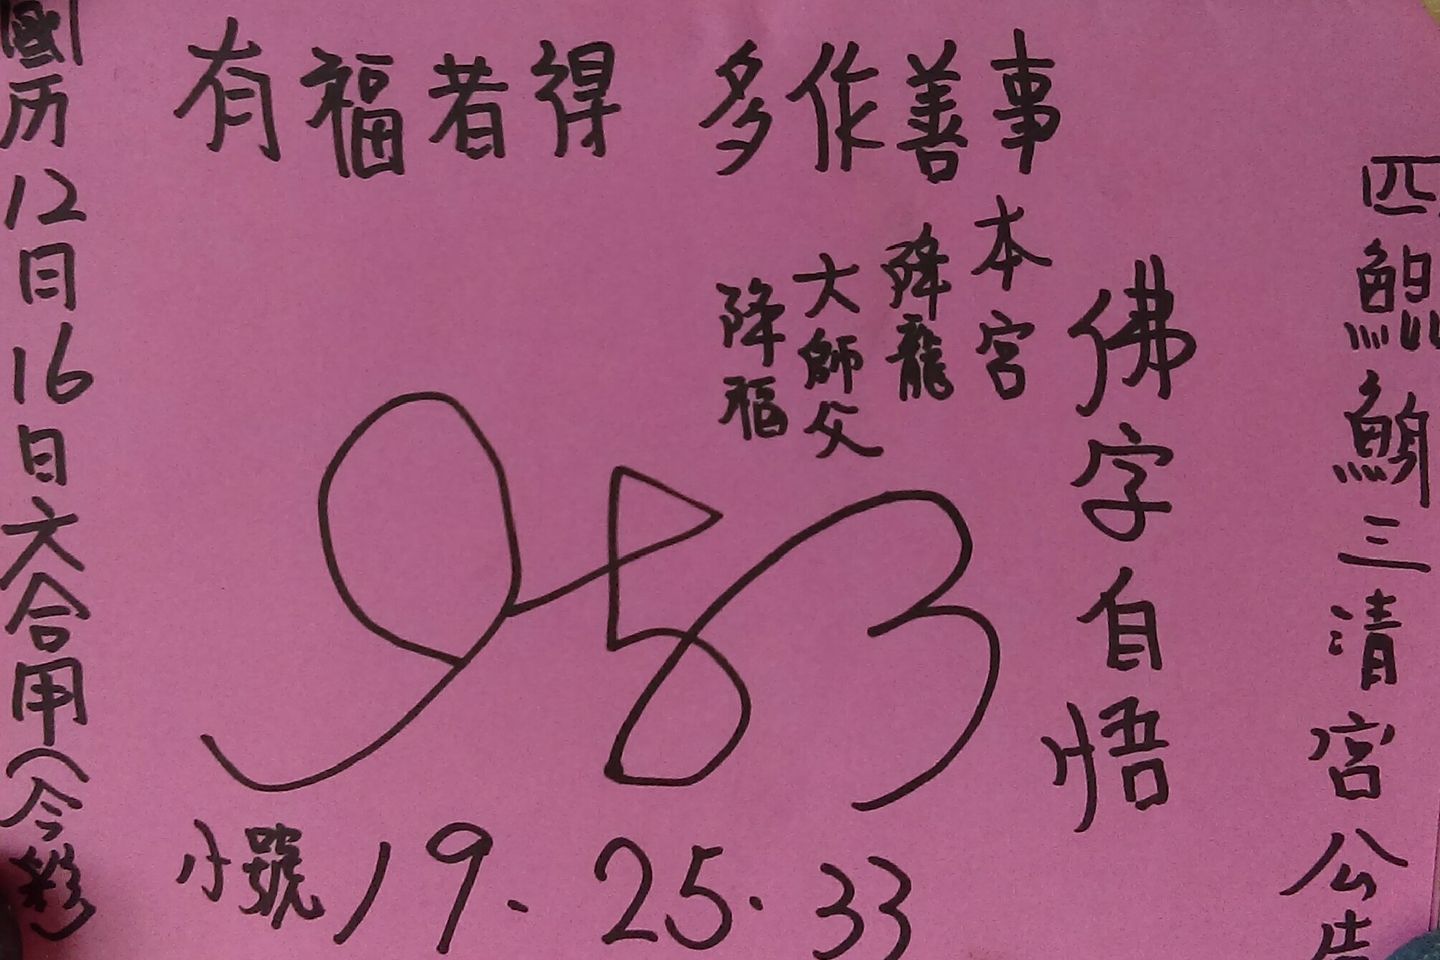 有福者得 多作善事
匹鯤鯓三清宮公告
佛字自悟
本宮
降龍
大師父
降福
小號 19. 25. 33
國历12月16日六合用(今彩)